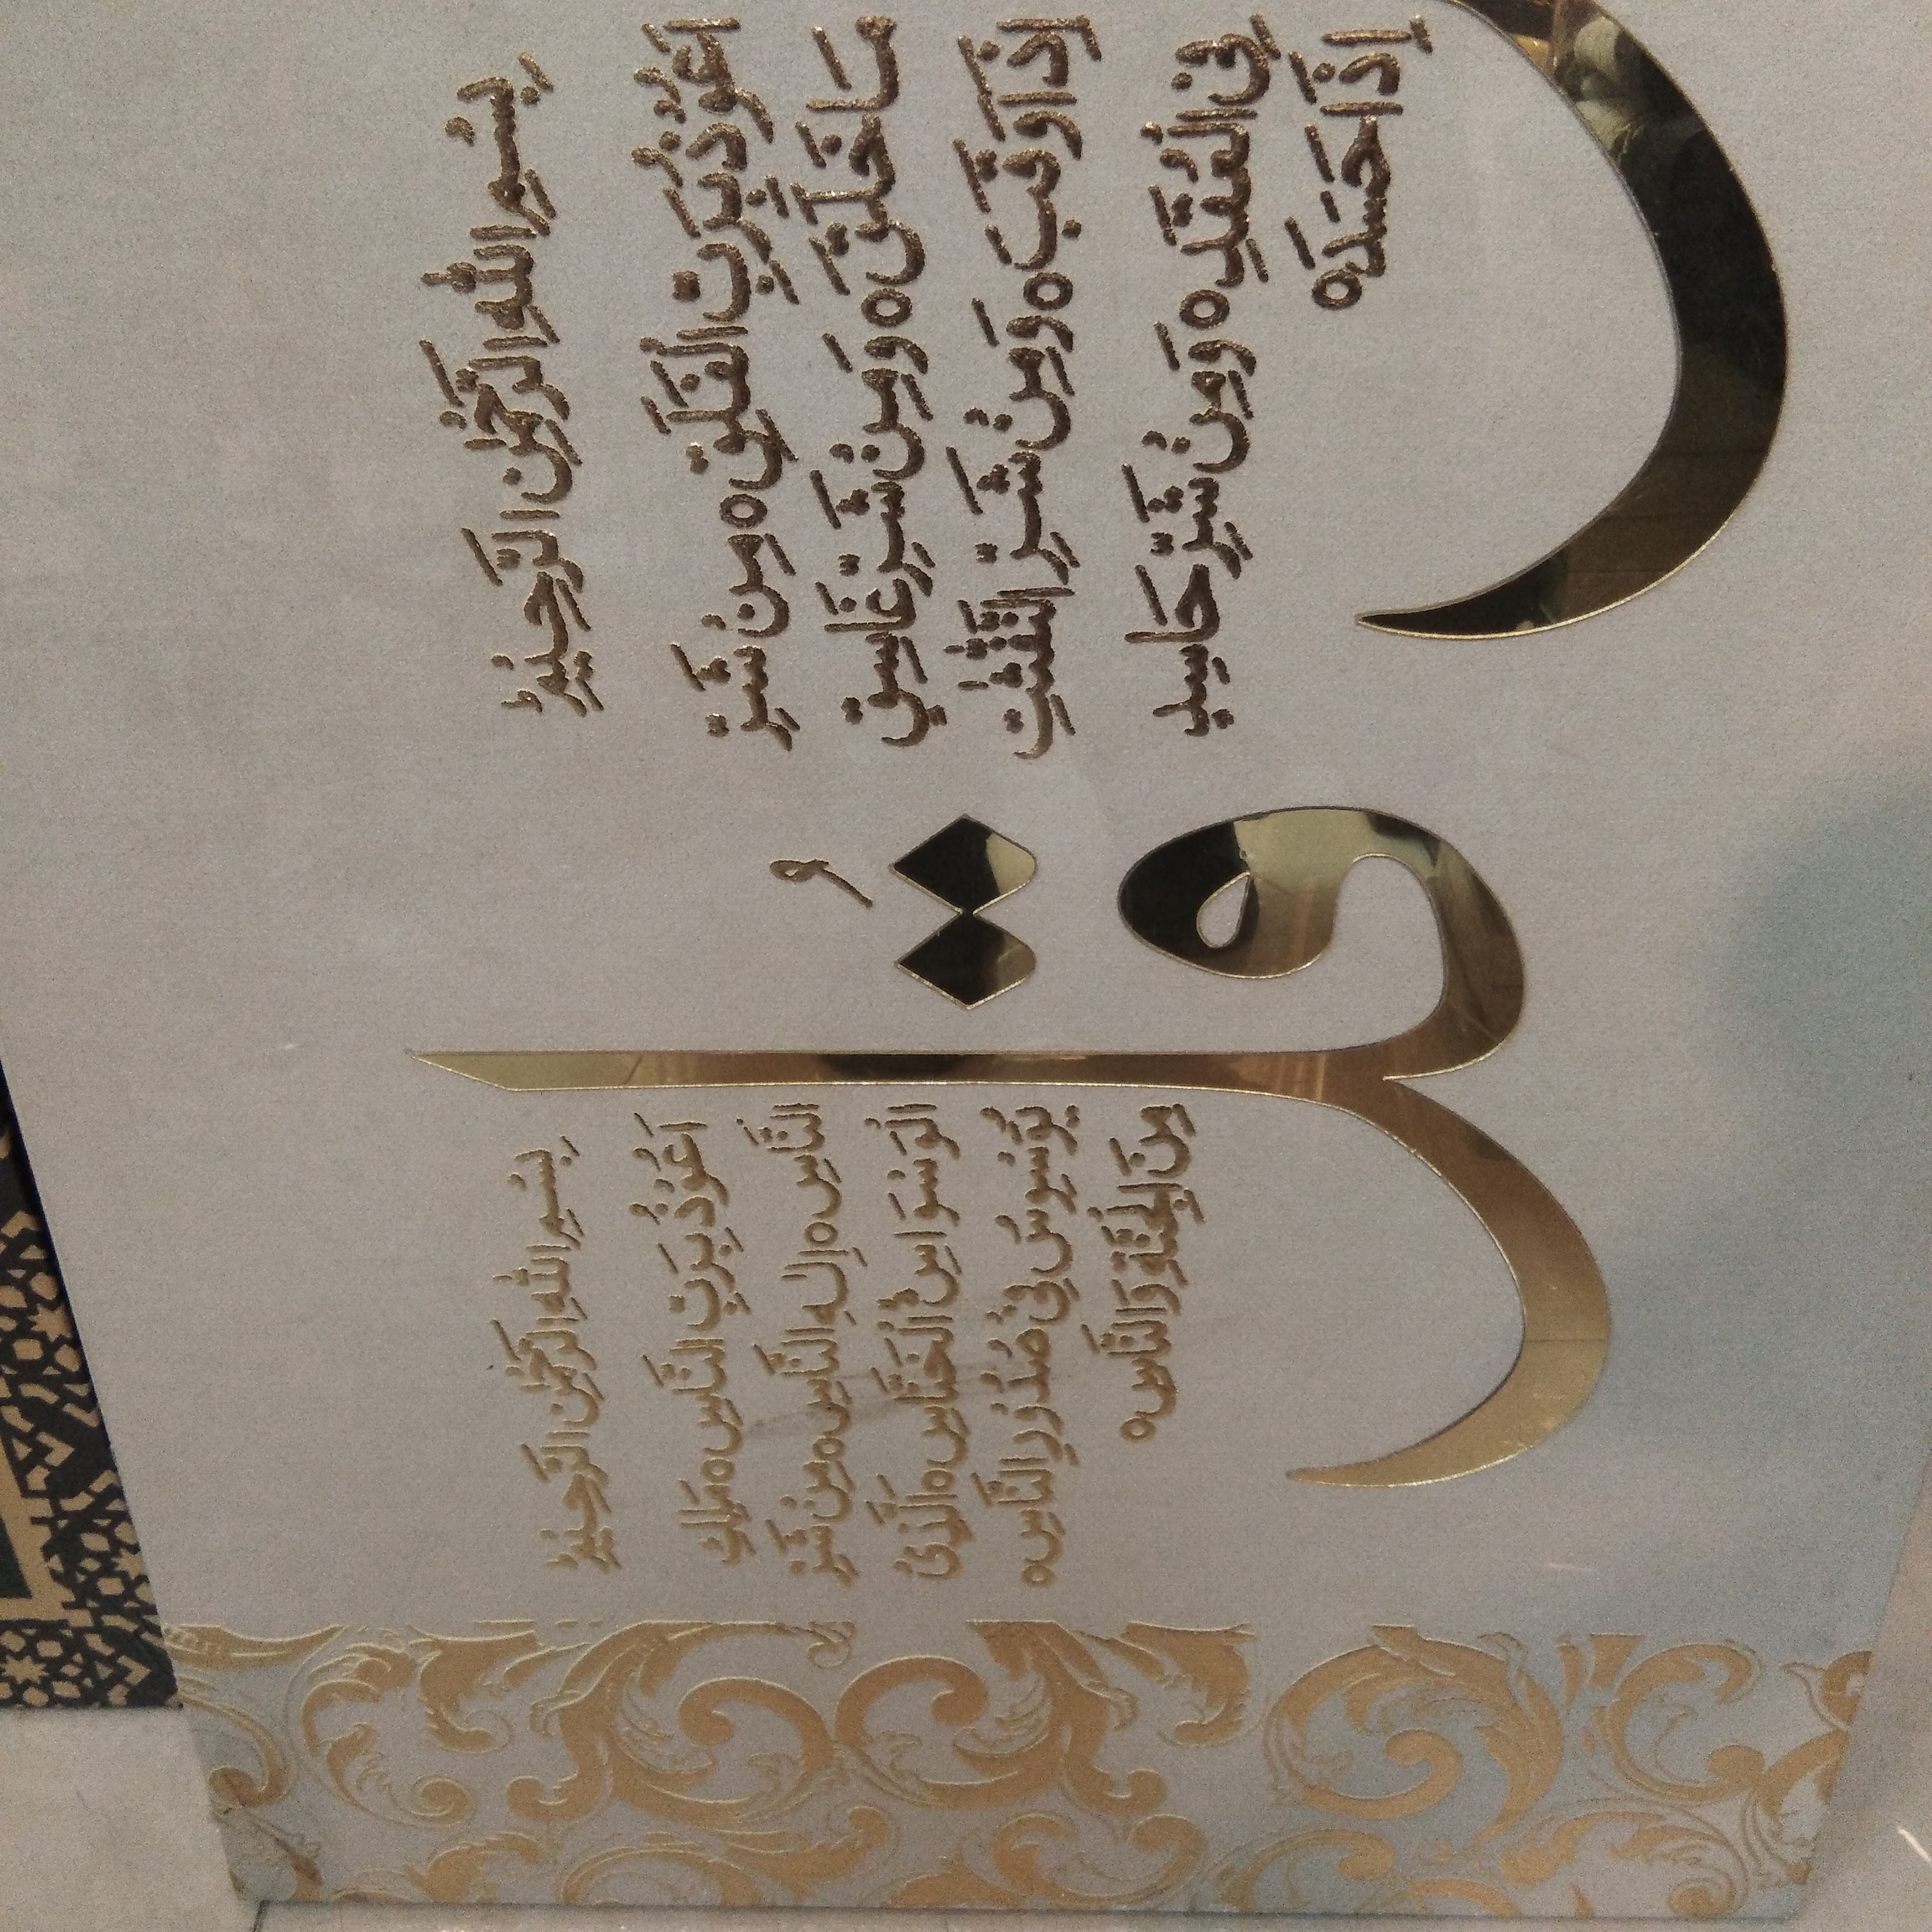 بِسْمِ اللهِ الرَّحْمٰنِ الرَّحِيْمِ
اَعُوْذُ بِرَبِّ الْفَلَقِ ہ مِنْ شَرِّ
مَا خَلَقَ ہ وَمِنْ شَرِّ غَاسِقٍ
اِذَا وَقَبَ ہ وَمِنْ شَرِّ النَّفّٰثٰتِ
فِی الْعُقَدِ ہ وَمِنْ شَرِّ حَاسِدٍ
اِذَا حَسَدَ ہ
قُل
بِسْمِ اللهِ الرَّحْمٰنِ الرَّحِيْمِ
اَعُوْذُ بِرَبِّ النَّاسِ ہ مَلِكِ
النَّاسِ ہ اِلٰهِ النَّاسِ ہ مِنْ شَرِّ
الْوَسْوَاسِ الْخَنَّاسِ ہ الَّذِیْ
يُوَسْوِسُ فِیْ صُدُوْرِ النَّاسِ ہ
مِنَ الْجِنَّةِ وَالنَّاسِ ہ